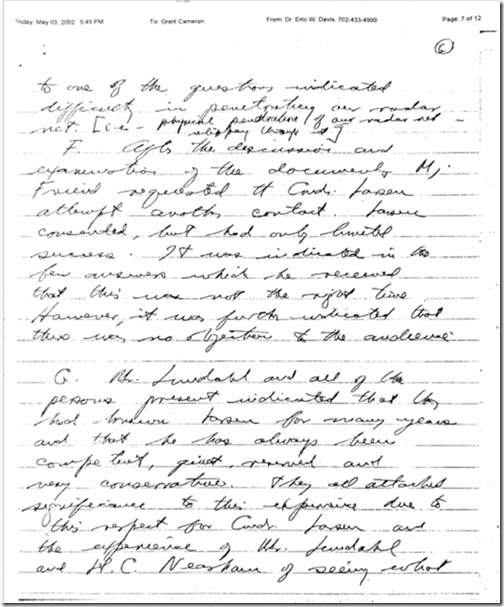 Friday, May 03, 2002 5:49 PM To: Grant Cameron From: Dr. Eric W. Davis, 702-433-4999 Page: 7 of 12
6
to one of the questions indicated
difficulty in penetrating our radar
net. [i.e. - physical penetration of our radar net -
slipping through it]
F. After the discussion and
examination of the documents Mj.
Friend requested tt Cmdr. Larsen
attempt another contact. Larsen
consented, but had only limited
success. It was indicated in the
few answers which he received
that this was not the right time
However, it was further indicated that
there was no objection to the audience
G. Mr. Lundahl and all of the
persons present indicated that they
had known Larsen for many years
and that he has always been
competent, quiet, reserved and
very conservative. They all attached
significance to this experience due to
this respect for Cmdr. Larsen and
the experience of Mr. Lundahl
and H.C. Neasham of seeing what